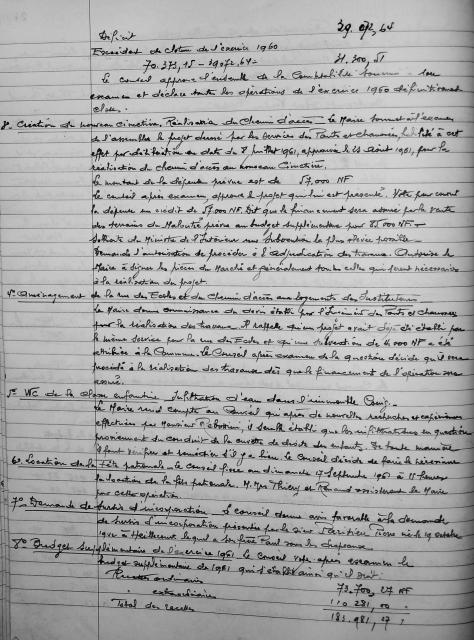 Déficit 39.072,64
Excédent de clôture de l'exercice 1960
70.373,15 - 39072.64 = 31.300,51
Le conseil approuve l'ensemble de la Comptabilité soumise à son
examen et déclare toutes les opérations de l'exercice 1960 définitivement
closes.
3° Création du nouveau cimetière. Réalisation du Chemin d'accès - Le Maire soumet à l'examen
de l'assemblée le projet dressé par les services des Ponts et Chaussées, habilité à cet
effet par délibération en date du 8 juillet 1961, approuvée le 23 Août 1961, pour la
réalisation du chemin d'accès au nouveau Cimetière.
Le montant de la dépense prévue est de 57,000 NF
Le conseil après examen, approuve le projet qui lui est présenté. Vote pour couvrir
la dépense un crédit de 57000 NF. Dit que le financement sera assuré par la vente
des terrains de prévue au budget supplémentaire pour 85 000 NF -
Sollicite du Ministre de l'Intérieur une Subvention la plus élevée possible -
Demande l'autorisation de procéder à l'adjudication des travaux. Autorise le
Maire à signer les pièces du Marché et généralement toutes celles qui seront nécessaires
à la réalisation du projet.
4° Aménagement de la rue des Ecoles et du Chemin d'accès aux logements des Instituteurs
Le Maire donne connaissance du devis établi par l'Ingénieur des Ponts et Chaussées
pour la réalisation des travaux. Il rappelle qu'un projet avait déjà été établi par
le même service pour la rue des Ecoles et qu'une subvention de 4.000 NF a été
attribuée à la Commune. Le Conseil après examen de la question décide qu'il sera
procédé à la réalisation des travaux dès que le financement de l'opération sera
assuré.
5° WC de la classe enfantine Infiltration d'eau dans l'immeuble
Le Maire rend compte au Conseil qui après de nouvelles recherches et expériences
effectuées par Monsieur, il semble établi que les infiltrations en question
proviennent du conduit de la cuvette de droite des enfants. De toute manière
il faut vérifier et remédier s'il y a lieu. Le Conseil décide de faire le nécessaire
6° Location de la Fête patronale. Le Conseil fixe au dimanche 17 Septembre 1961 à 11 heures
la location de la fête patronale. M. Mrs Thiery et Renaud assisteront le Maire
pour cette opération.
7° Demande de sursis d'incorporation. Le conseil donne avis favorable à la demande
de sursis d'incorporation présentée par le sieur Pierre né le 19 octobre
à lequel a son frère Paul sous les drapeaux
8° Budget supplémentaire de l'exercice 1961. Le conseil vote après examen le
budget supplémentaire de 1961 qui s'établit ainsi qu'il suit:
Recettes ordinaires 73.700,27 NF
" extraordinaires 110 281,00 "
Total des recettes 183.981,27 "